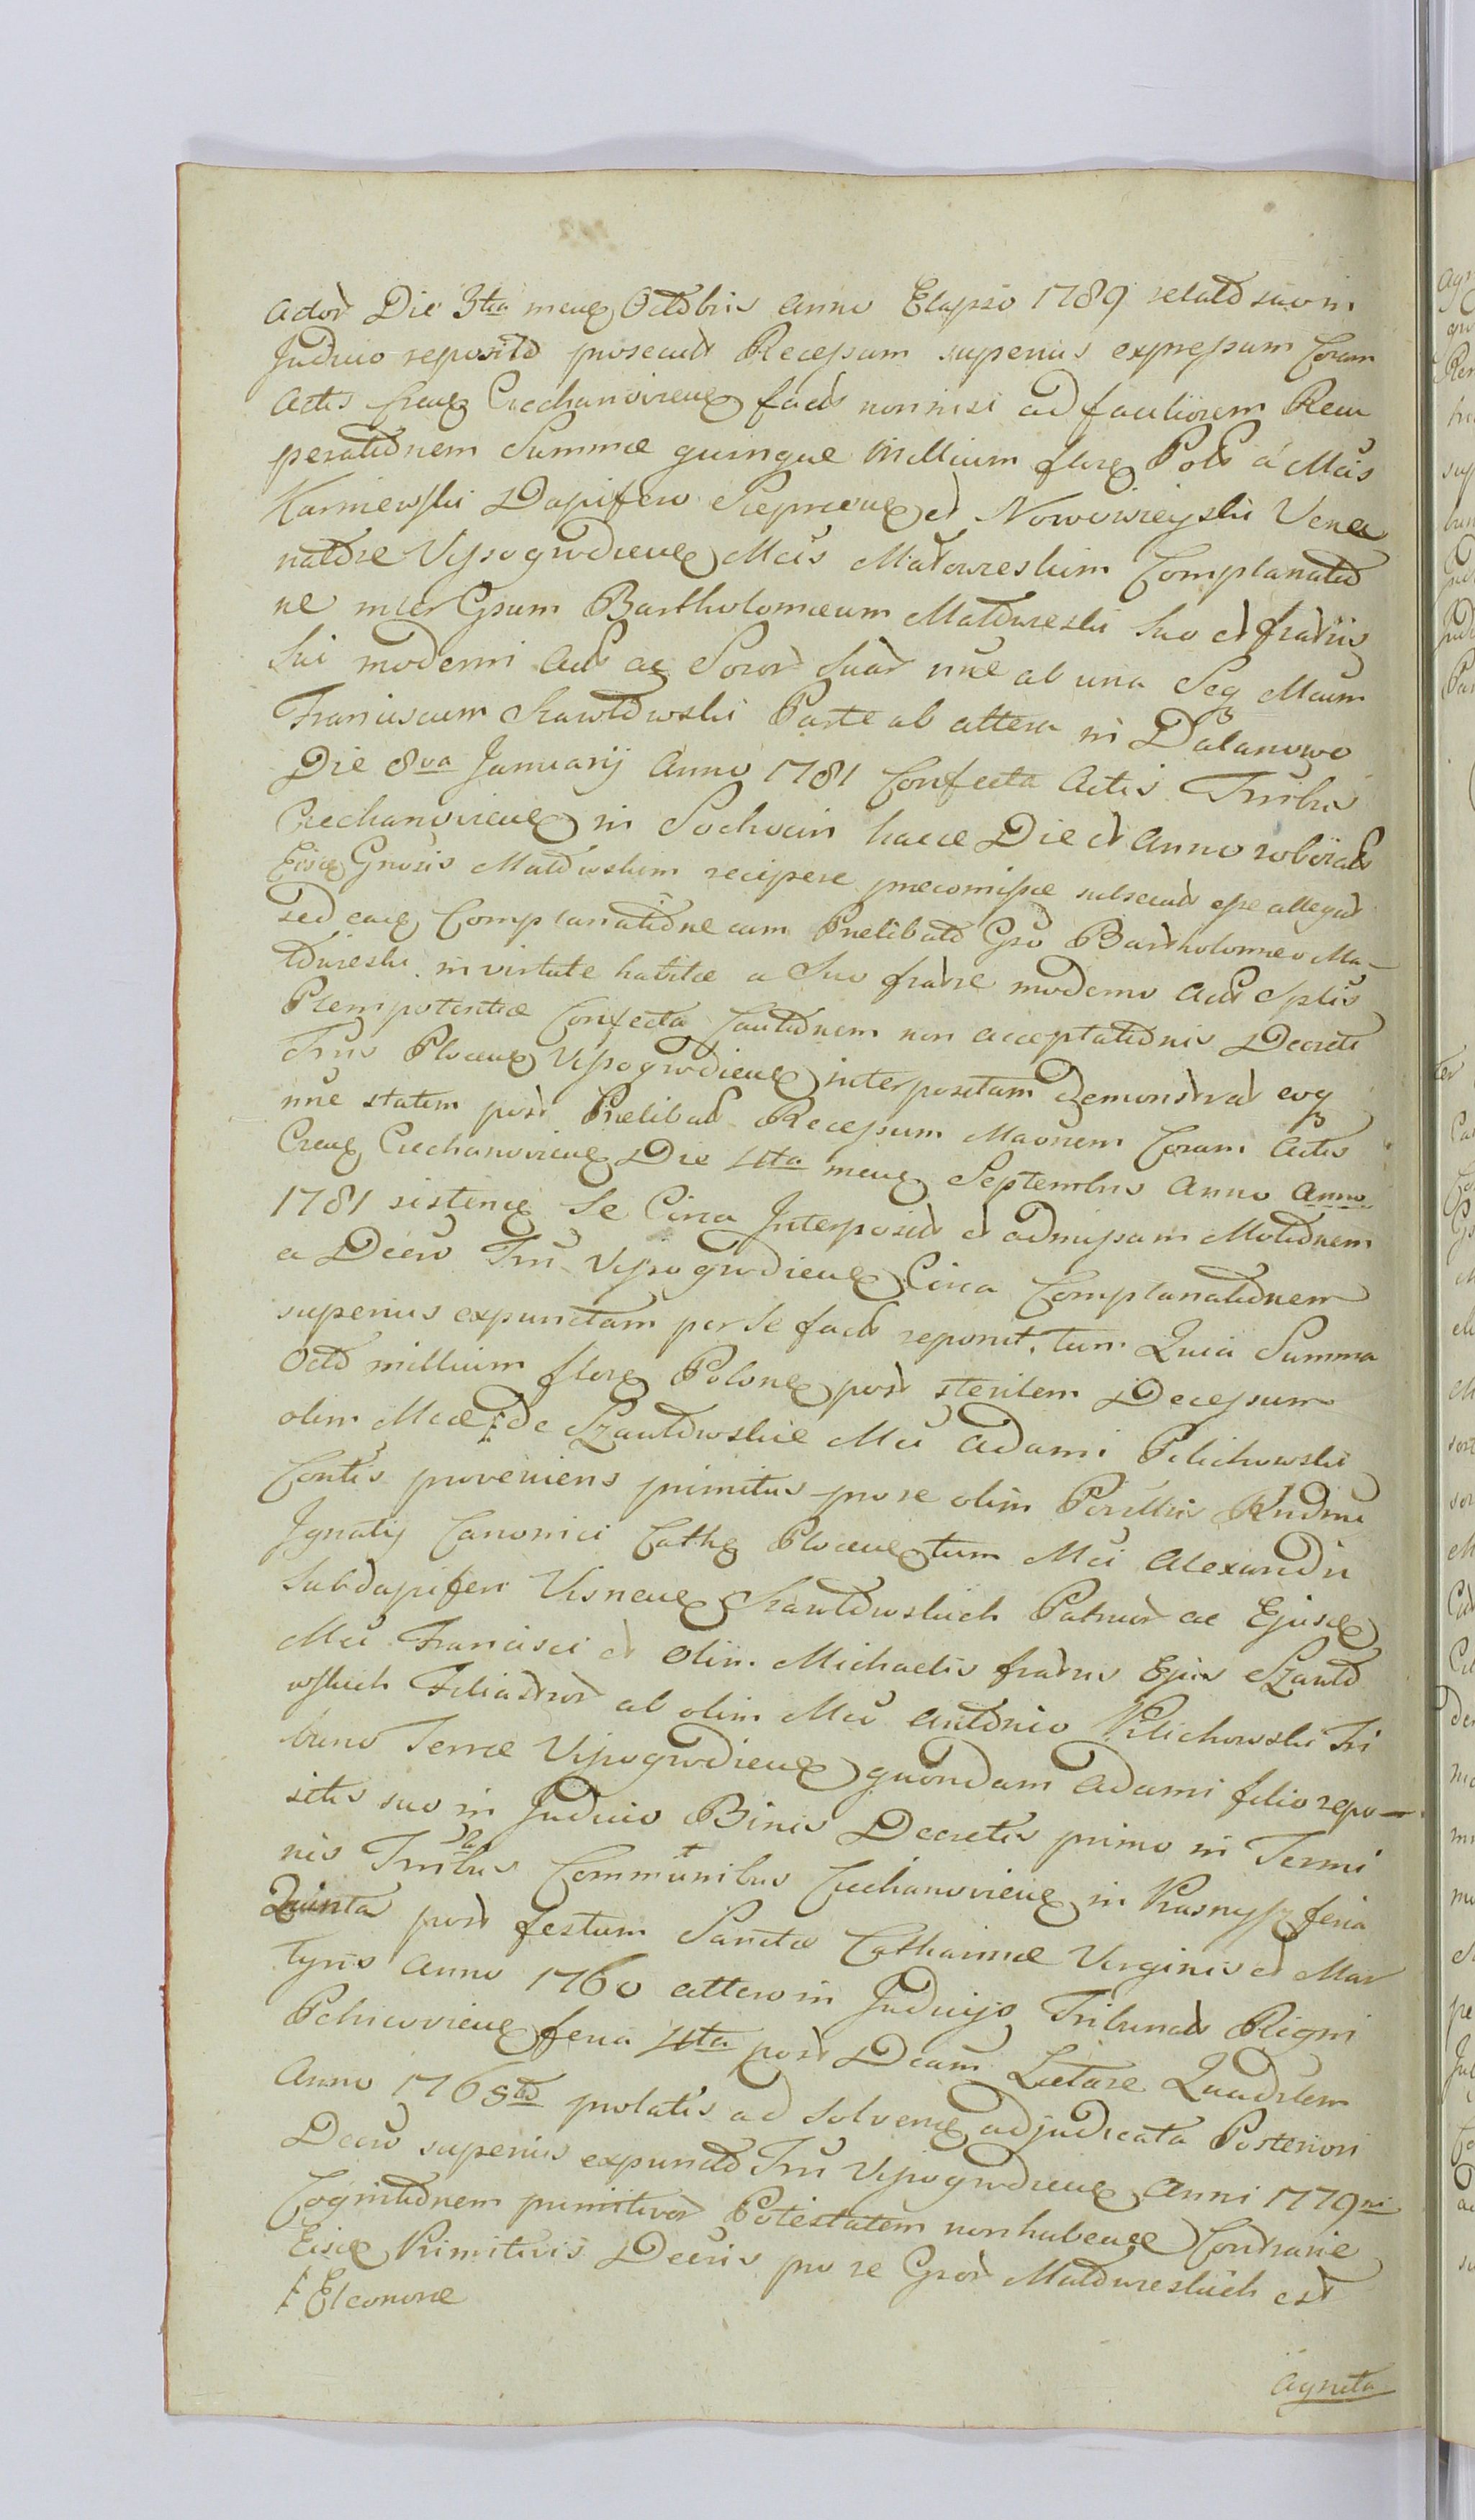 Actor Die 3tia mens Octobris Anno Elapso 1789 relato suo in
Judicio reposito prosecut Recessum superius expressum Coram
Actis Crens Ciechanoviens fact nonnisi ad faciliorem Recu
perationem Summæ quinque Millium flors Pols á Mcis
Karniewski Dapifero Sieprcens et Nowowieyski Vena
natore Vyszogrodiens Mcis Małowieskim Complanatio
ne inter Gsum Bartholomæum Małowieski suo et fratris
sui moderni Act ac Soror Suar nne ab una Seq Mcum
Franciscum Szawłowski Parte ab altera in Dalanowo
Die 8va Januarij Anno 1781 Confecta Actis Trribus
Ciechanoviens in Sochocin hacce Die et Anno roborat
Eisd Gnosis Małowskim recipere præcomisse subsecut esse allegat
sed eaq Complanatione cum Prelibato Gso Bartholomeo Ma-
łowieski in virtute habitæ a Suo fratre moderno Act Splis
Plenipotentiæ Confecta Cautionem non acceptationis Decreti
Trris Plocens Vyszogrodiens interpositam demonstrat eoq
nne statim post Prelibat Recessum Maonem Coram Actis
Crens Ciechanoviens Die 4ta mens Septembris Anno Anno
1781 sistens Se Circa Interposit et admissam Motionem
a Decro Trri Vyszogrodiens Circa Complanationem
superius expunctam per Se fact reponit, tum Quia Summa
Octo millium flors Polons post sterilem Decessum
olim Mcæ ⁒ de Szawłowskie Mci Adami Pilichowski
Contis proveniens primitus pro re olim Perillris Rndmi
Ignatij Canonici Cathe Plocens tum Mci Alexandri
Subdapiferi Visnens Szawłowskich Patruor ac Ejusd
Mci Francisci et Olim Michaelis fratris Ejus Szawło
wskich Filiastror ab olim Mco Antonio Pilichowski Tri
buno Terræ Vyszogrodiens quondam Adami filio repo-
sitis suo in Judicio Binis Decretis primo in Termi
nis Trribus Communibus Ciechanoviens in Krasnysz feria
Quinta post festum Sanctæ Catharinæ Virginis et Mar
tyris Anno 1760 altero in Judicijs Tribunal Regni
Petricoviens feria 4ta post Dcam Lætare Quadrlem
Anno 1765to prolatis ad solvend adjudicata Posteriori
Decro superius expuncto Trri Vyszogrodiens Anni 1779ni
Cognitionem primitivor Potestatem non habente Contrarie
Eisd Primitivis Decris pro re Gsor Małowieskich est
⁒ Eleonoræ
Agneta